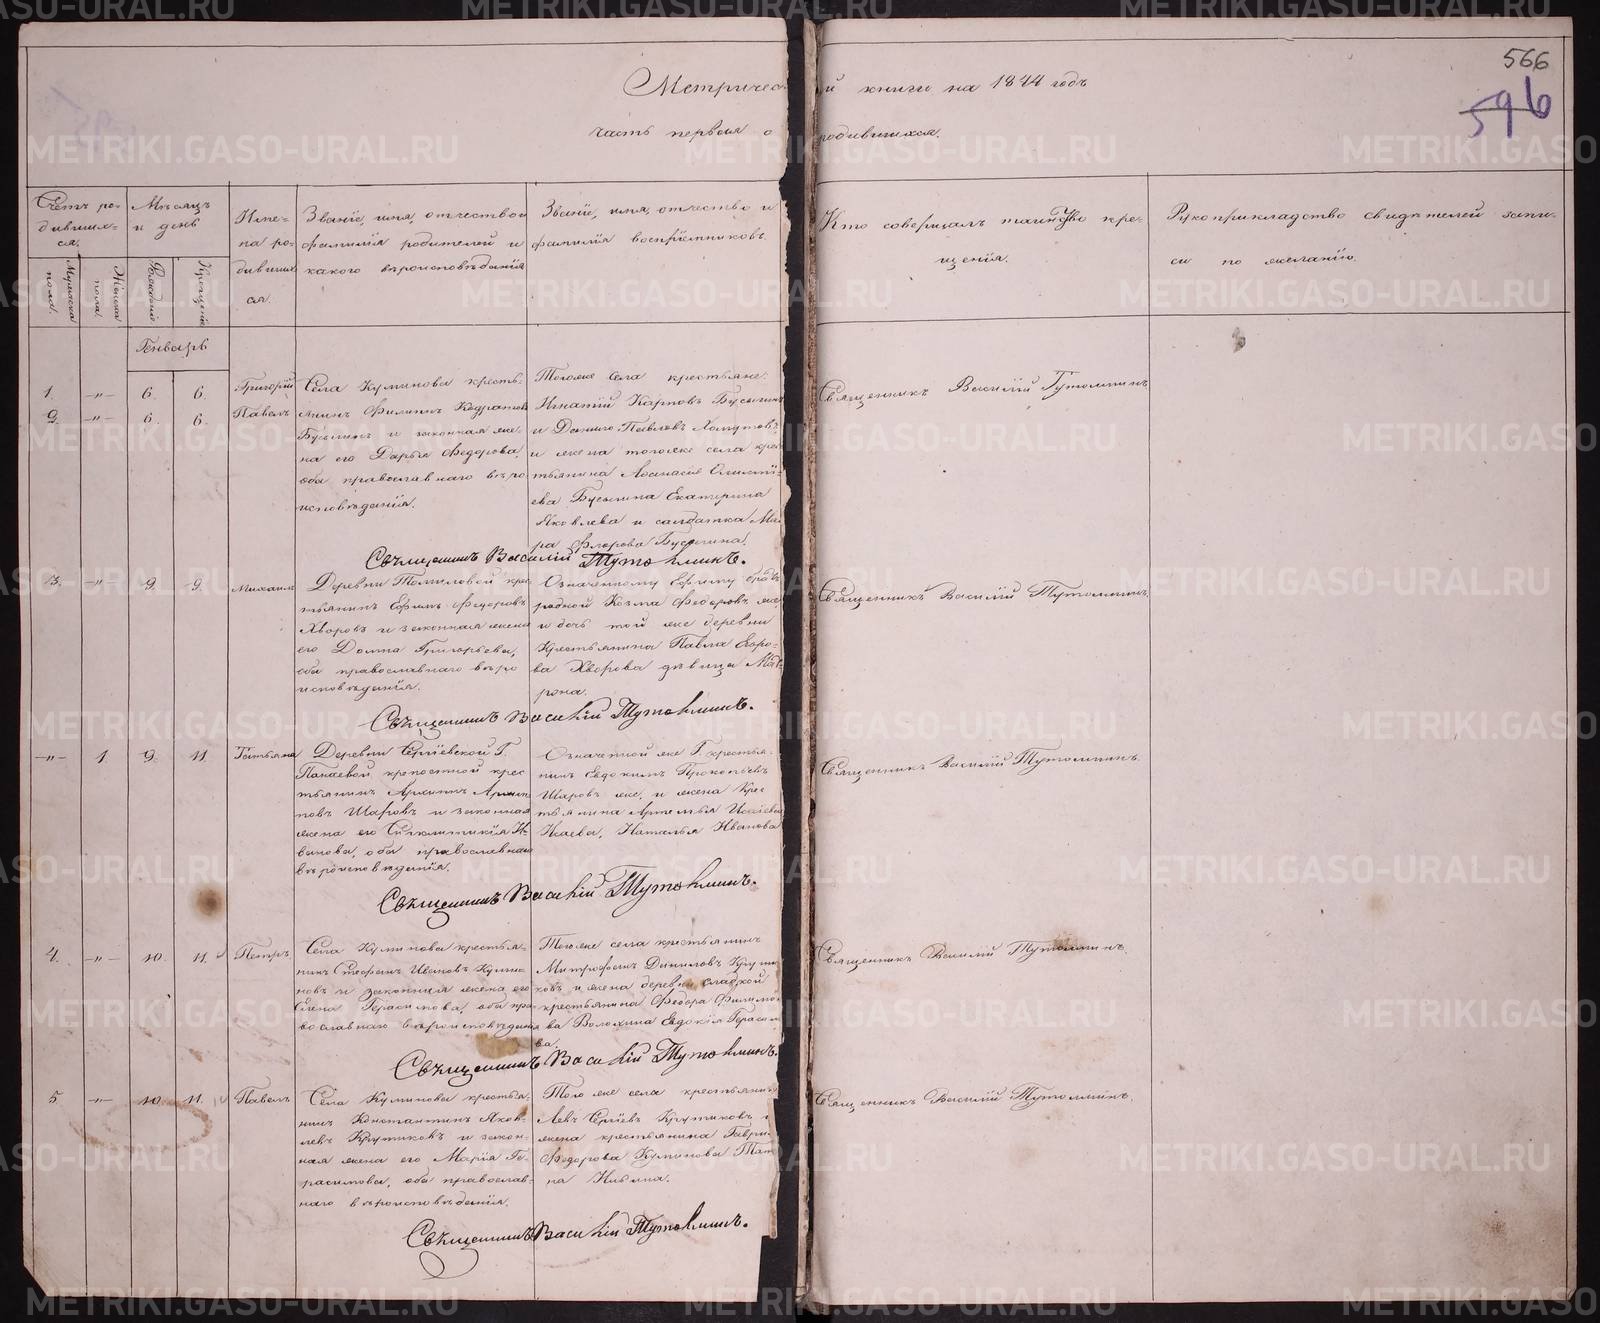 566
596
Метрической книги на 1844 годъ
часть первая о родившихся.
Счетъ ро-
дивших-
ся.
Мужеска
пола.
Женска
пола.
Мѣсяцъ
и день
Рожденіе
Крещеніе
Име-
на ро-
дивших
ся.
Званіе, имя, отчество и
фамилія родителей и
какого вѣроисповѣданія
Званіе, имя, отчество и
фамилія воспріемниковъ
Кто совершалъ таинство кре-
щенія.
Рукоприкладство свидѣтелей запи-
си по желанію.
Генварь
1. -"- 6. 6. Григорій
2. -"- 6 6. Павелъ
Села Куминова кресть-
янинъ Филиппъ Кодратовъ
Бусыгинъ и законная же-
на его Дарья Федорова,
оба православнаго вѣро
исповѣданія.
Тогоже села крестьяне:
Игнатій Карповъ Бусыгинъ
и Данило Павловъ Хомутовъ,
и жена тогоже села крес
тьянина Афанасія
ева Бусыгина Екатерина
Яковлева и салдатка Мав
ра Флорова Бусыгина.
Священникъ Василій Тутолминъ
Священникъ Василій Тутолминъ.
3. -"- 9 9. Михаилъ
Деревни Томиловой кре
стьянинъ Ефимъ Федоровъ
Хворовъ и законная жена
его Домна Григорьева,
оба православнаго вѣро
исповѣданія.
Означенному Ефиму братъ
родной Козма Федоровъ же
и дочь той же деревни
Крестьянина Павла Егоро-
ва Хворова дѣвица Мат
рона.
Священникъ Василій Тутолминъ.
Священникъ Василій Тутолминъ.
-"- 1 9. 11. Татьяна
Деревни Сергіевской Г.
Панаевой крепостной крес
тьянинъ Архипъ Архип
повъ Шаровъ и законная
жена его Синклитикія И-
ванова, оба православнаго
вѣроисповѣданія.
Означенной же Г. крестья-
нинъ Евдокимъ Прокопьевъ
Шаровъ же, и жена Крес
тьянина Артемья Исаева
Исаева, Наталья Иванова
Священникъ Василій Тутолминъ.
Священникъ Василій Тутолминъ.
4. -"- 10. 11. Петръ
Села Куминова крестья-
нинъ Стефанъ Ивановъ Куми
новъ и законная жена его
Елена Герасимова, оба пра
вославнаго вѣроисповѣданія
Тогоже села крестьянинъ
Митрофанъ Даниловъ Крути
ковъ и жена деревни Сладкой
крестьянина Федора Филипо
ва Волохина Евдокія Гераси
ва.
Священникъ Василій Тутолминъ.
Священникъ Василій Тутолминъ.
5 -"- 10. 11. Павелъ
Села Куминова крестья-
нинъ Константинъ Яков-
левъ Крутиковъ и закон-
ная жена его Марія Ге-
расимова, оба православ-
наго вѣроисповѣданія.
Того же села крестьянинъ
Левъ Сергіевъ Крутиковъ и
жена крестьянина Гаврил
Федорова Куминова Тать
на Ильина.
Священникъ Василій Тутолминъ.
Священникъ Василій Тутолминъ.
METRIKI.GASO-URAL.RU